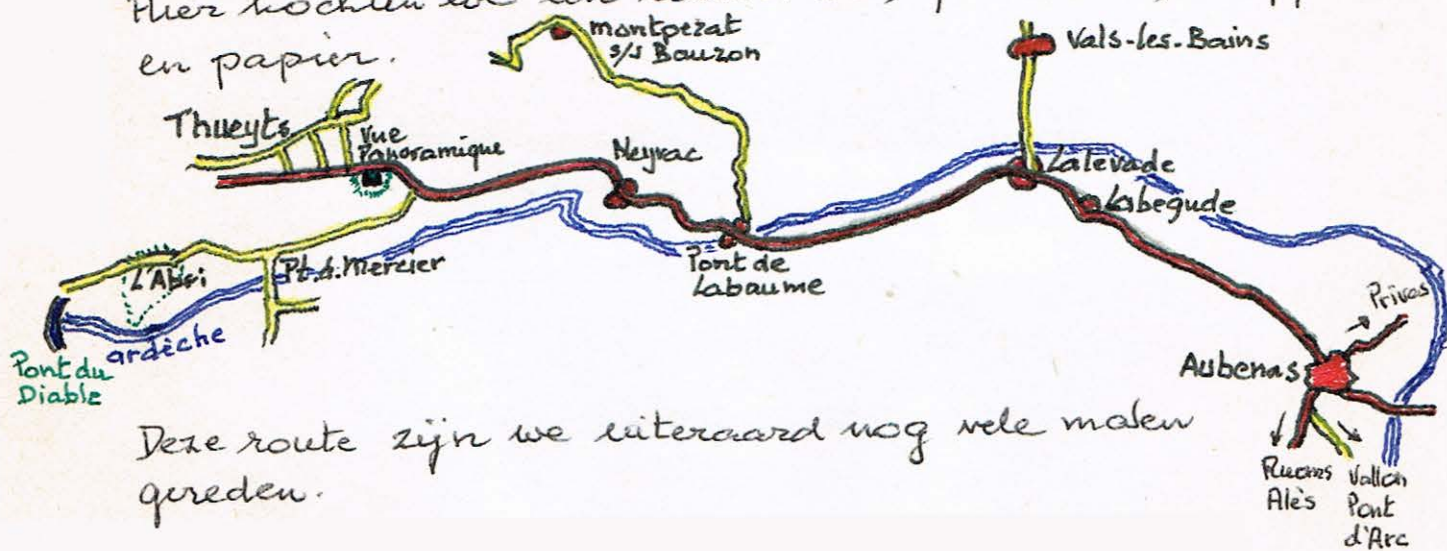 Hier kochten we een
en papier.
montpezat
s/s Bauzon
Vals-les-Bains
Thueyts
Vue
Panoramique
Neyrac
Lalevade
Labegude
L'Abri
Pt.d.Mercier
Pont de
Labaume
ardèche
Pont du
Diable
Privas
Aubenas
Ruoms
Alès
Vallon
Pont
d'Arc
Deze route zijn we uiteraard nog vele malen
gereden.